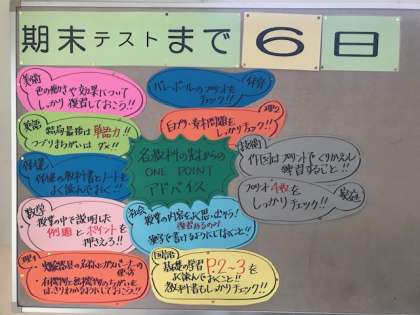 期末テストまで 6 日
美術
色の働きや効果について
しっかり復習しておこう!!
体育
バレーボールのプリントを
チェック!!
英語
結局最後は単語力!!
つづりまちがいは ダメ!!
理科
白プリ・資料問題を
しっかりチェック!!
各教科の先生からの
ONE POINT
アドバイス
技術
作図はプリントでくりかえし
練習すること!!
保健
保健の教科書とノートを
よく読んでおく!!
家庭
プリント4枚を
しっかりチェック!!
数学
授業の中で説明した
例題とポイントを
押さえろ!!
社会
授業の内容をよく思い出そう!
復習あるのみ
漢字で書けるようにしておくこと!!
理1
実験器具の名称とガスバーナーの
使い方
有機物と無機物のちがいを
はっきりわかるようにしておこう!!
国語
基礎の学習 P.2~3を
よく読んでおくこと!!
教科書もしっかりチェック!!